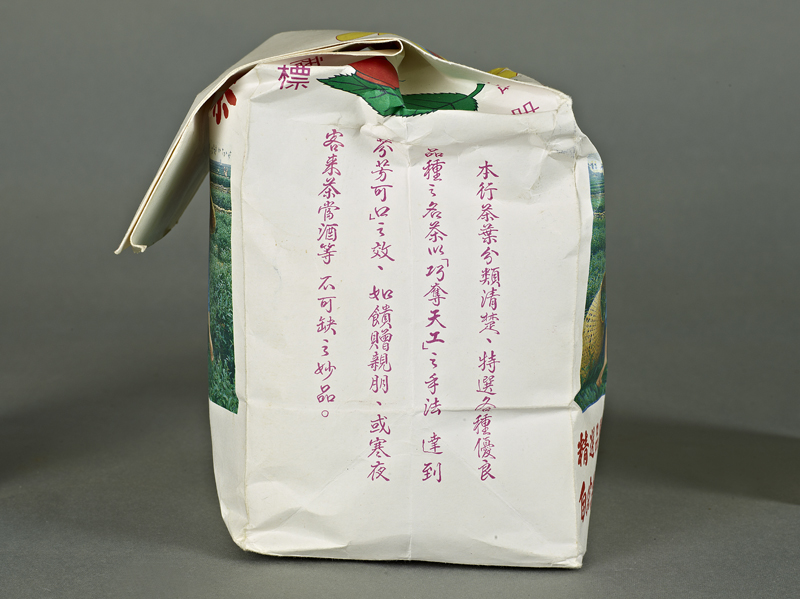 標
本行茶葉分類清楚、特選各種優良
品種之各茶以「巧奪天工」之手法 達到
芬芳可「口」之效、如饋贈親朋、或寒夜
客來茶當酒等 不可缺之妙品。
精選